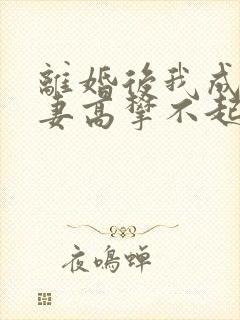 離婚後我成
妻高攀不起
夜鳴蟬